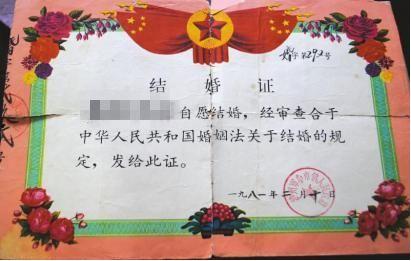 婚字第292号
结婚证
自愿结婚，经审查合于
中华人民共和国婚姻法关于结婚的规
定，发给此证。
一九八一年 月 日